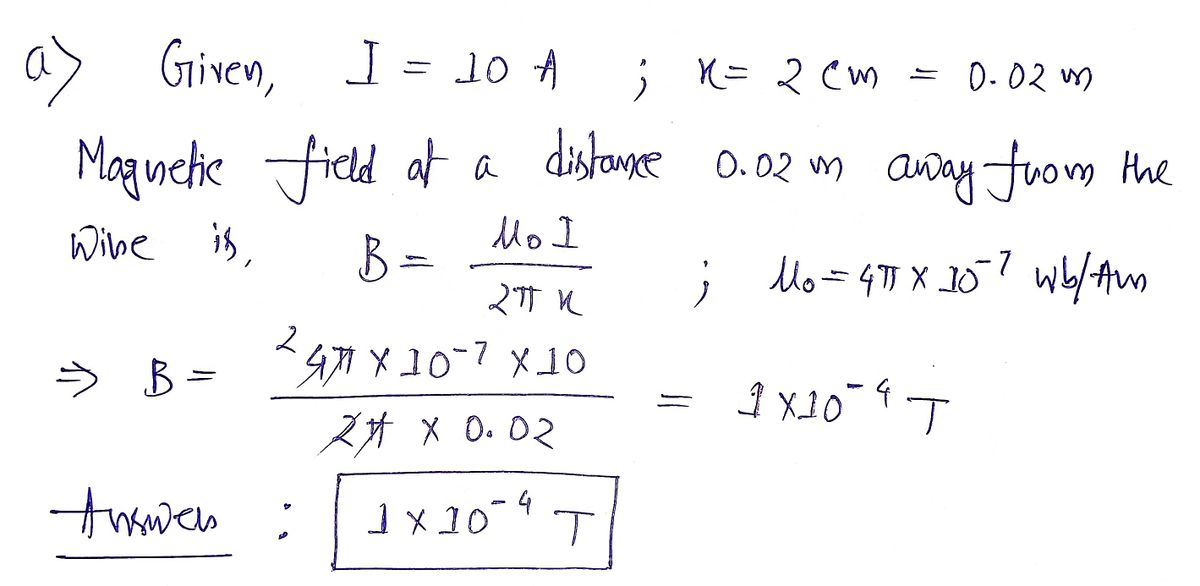 a) Given, I = 10 A ; x = 2 cm = 0.02 m
Magnetic field at a distance 0.02 m away from the
wire is, B = μ₀I / 2πx ; μ₀ = 4π × 10⁻⁷ Wb/Am
⇒ B = ² 4π × 10⁻⁷ × 10 / 2π × 0.02 = 1 × 10⁻⁴ T
Answer : 1 × 10⁻⁴ T